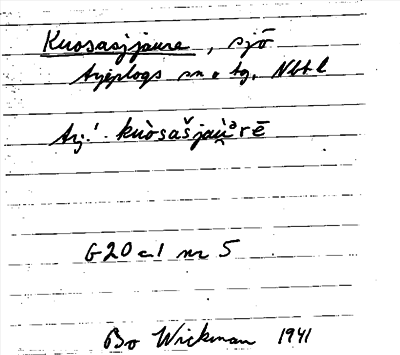 Kuosasjjaure, sjö
Arjeplogs sn. tg. Nbtl
Arj. kuòsašjaùᵊrē
G20 c1 nr 5
Bo Wickman 1941